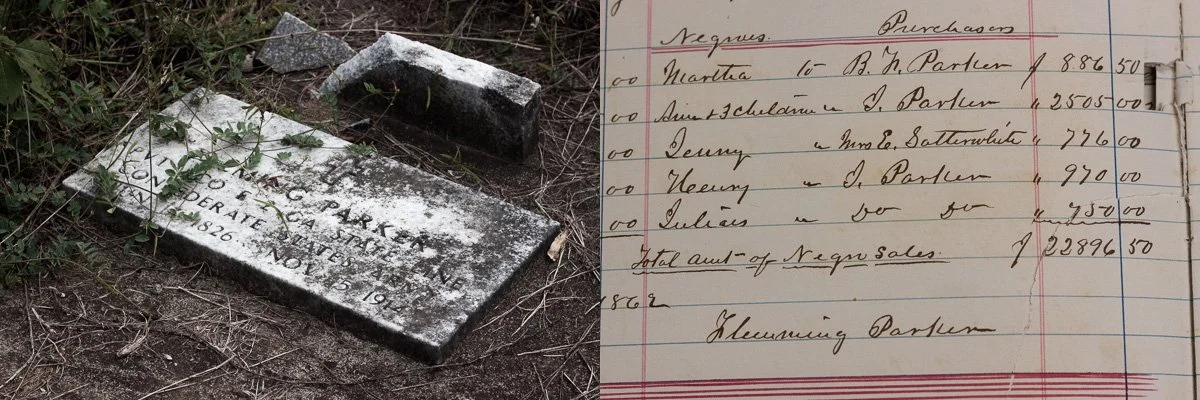 PARKER
CO E GA STATE LINE
CONFEDERATE STATES ARMY
1826
NOV 15 19
Negroes. Purchasers
00 Martha to B. F. Parker $ 886 50
00 Ann & 3 children " J. Parker " 2505 00
00 Jenny " Mrs E. Satterwhite " 776 00
00 Henry " J. Parker " 970 00
00 " Do Do " 750 00
Total amt of Negro Sales. $ 22896 50
1862
Flemming Parker